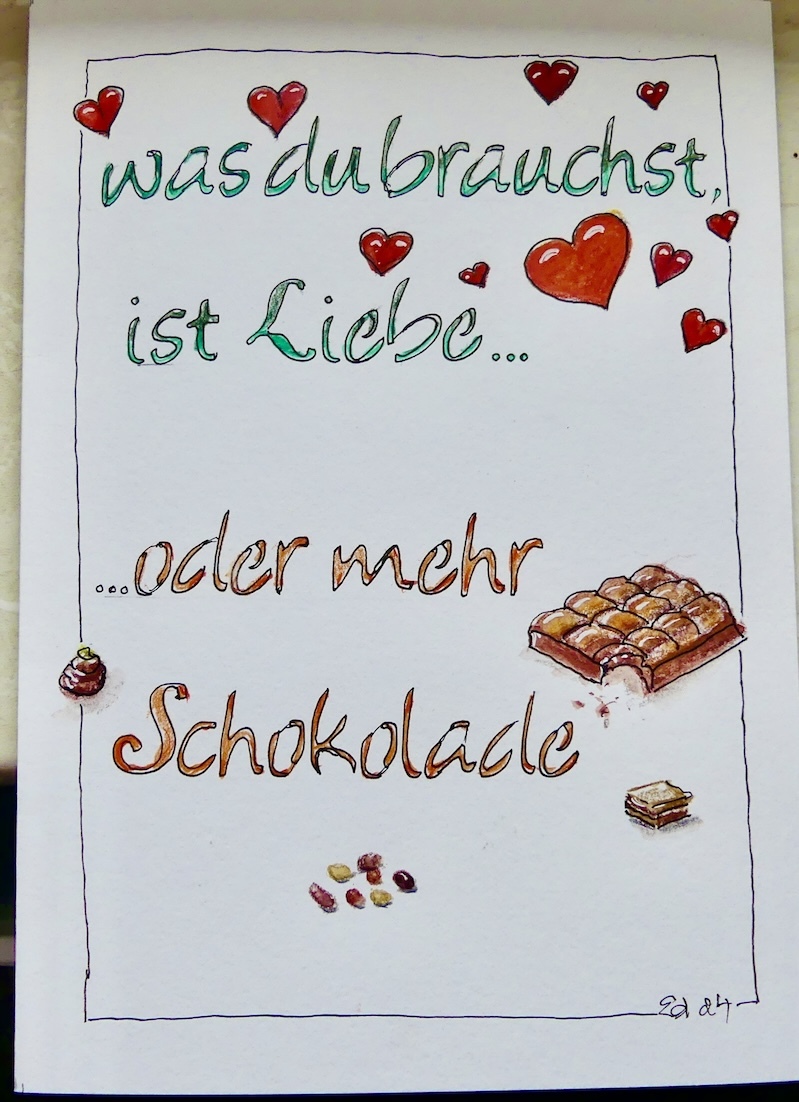 was du brauchst,
ist Liebe...
...oder mehr
Schokolade